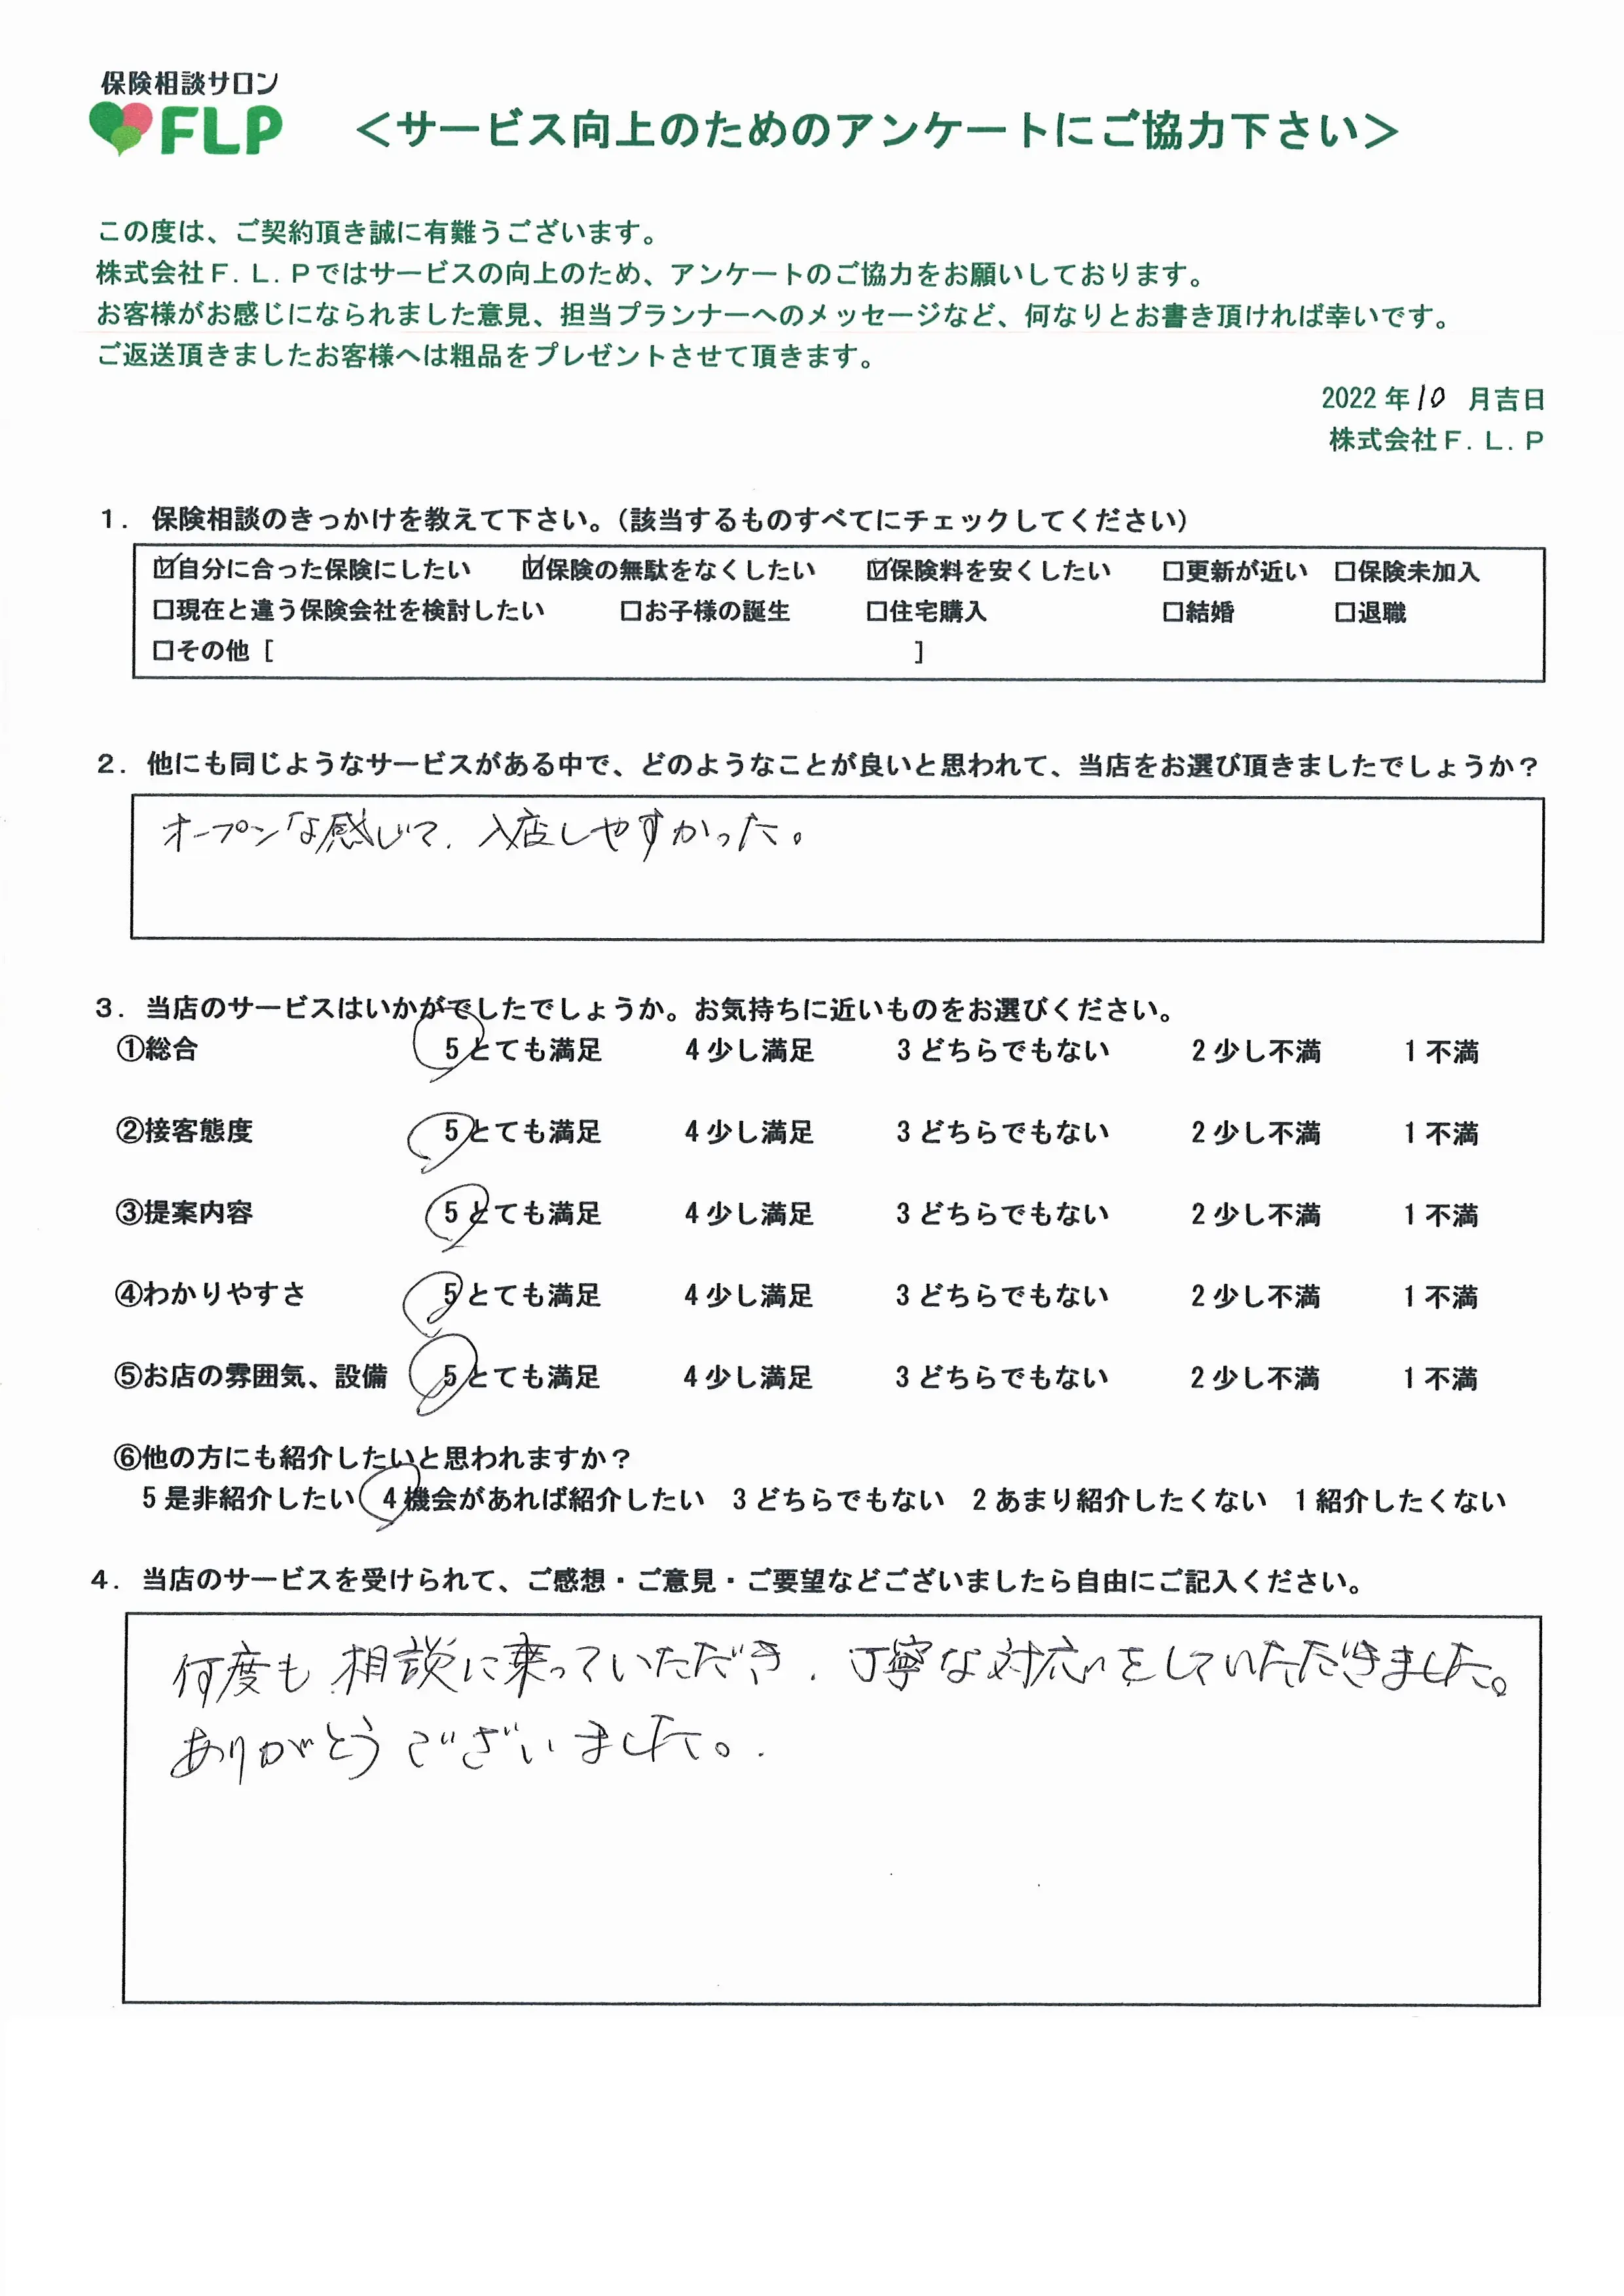 保険相談サロン
FLP
＜サービス向上のためのアンケートにご協力下さい＞
この度は、ご契約頂き誠に有難うございます。
株式会社Ｆ．Ｌ．Ｐではサービスの向上のため、アンケートのご協力をお願いしております。
お客様がお感じになられました意見、担当プランナーへのメッセージなど、何なりとお書き頂ければ幸いです。
ご返送頂きましたお客様へは粗品をプレゼントさせて頂きます。
2022年10月吉日
株式会社Ｆ．Ｌ．Ｐ
１．保険相談のきっかけを教えて下さい。（該当するものすべてにチェックしてください）
☑自分に合った保険にしたい ☑保険の無駄をなくしたい ☑保険料を安くしたい □更新が近い □保険未加入
□現在と違う保険会社を検討したい □お子様の誕生 □住宅購入 □結婚 □退職
□その他［ ］
２．他にも同じようなサービスがある中で、どのようなことが良いと思われて、当店をお選び頂きましたでしょうか？
オープンな感じで、入店しやすかった。
３．当店のサービスはいかがでしたでしょうか。お気持ちに近いものをお選びください。
①総合 5とても満足 4少し満足 3どちらでもない 2少し不満 1不満
②接客態度 5とても満足 4少し満足 3どちらでもない 2少し不満 1不満
③提案内容 5とても満足 4少し満足 3どちらでもない 2少し不満 1不満
④わかりやすさ 5とても満足 4少し満足 3どちらでもない 2少し不満 1不満
⑤お店の雰囲気、設備 5とても満足 4少し満足 3どちらでもない 2少し不満 1不満
⑥他の方にも紹介したいと思われますか？
5是非紹介したい 4機会があれば紹介したい 3どちらでもない 2あまり紹介したくない 1紹介したくない
４．当店のサービスを受けられて、ご感想・ご意見・ご要望などございましたら自由にご記入ください。
何度も相談に乗っていただき、丁寧な対応をしていただきました。
ありがとうございました。